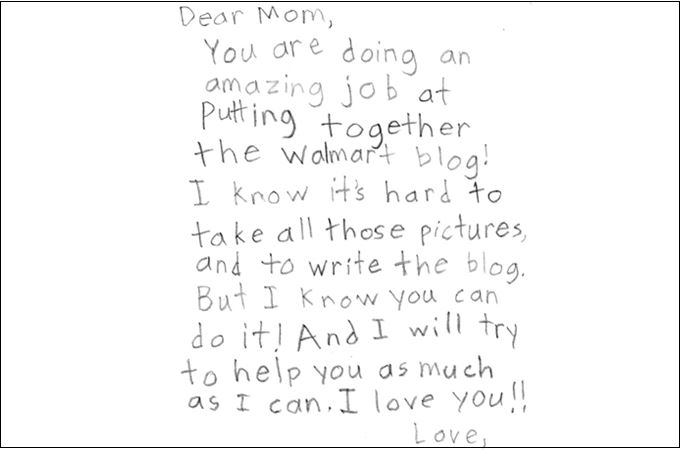 Dear Mom,
You are doing an
amazing job at
Putting together
the walmart blog!
I know it's hard to
take all those pictures,
and to write the blog.
But I know you can
do it! And I will try
to help you as much
as I can. I love you!!
Love,